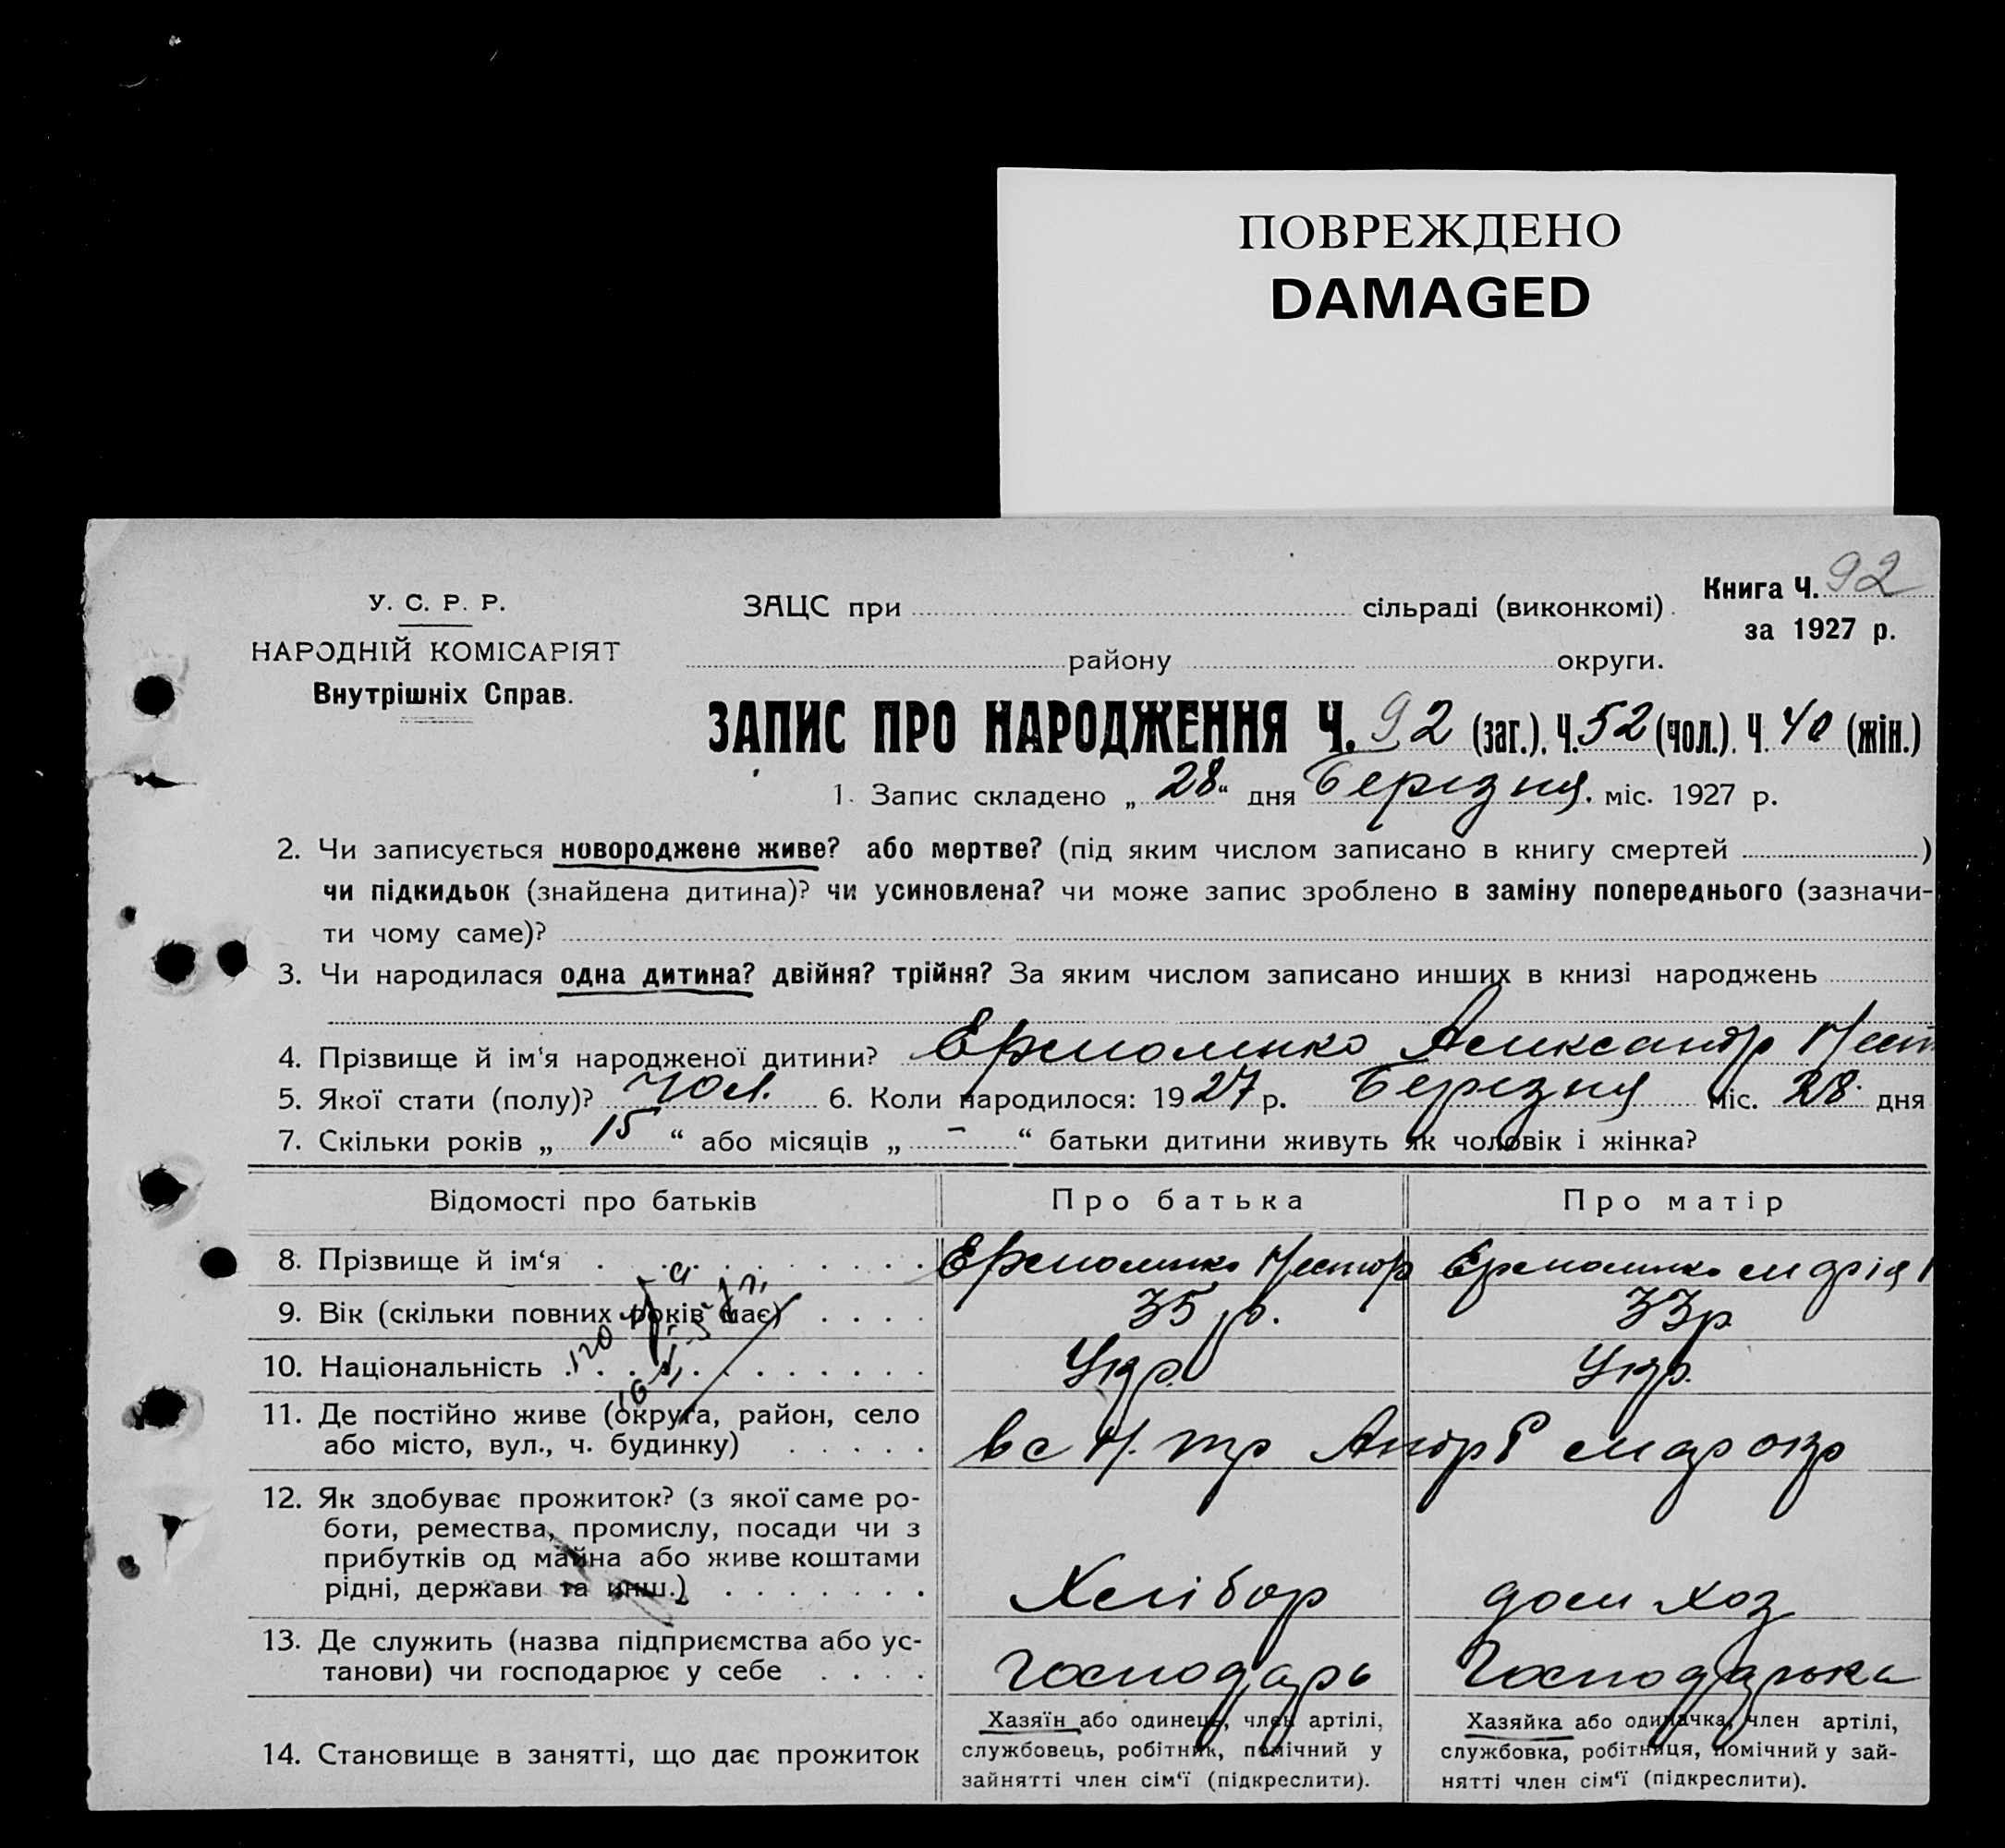 ПОВРЕЖДЕНО
DAMAGED
У. С. Р. Р.
НАРОДНІЙ КОМІСАРІЯТ
Внутрішніх Справ.
ЗАЦС при сільраді (виконкомі).
району округи.
Книга Ч. 92
за 1927 р.
ЗАПИС ПРО НАРОДЖЕННЯ Ч. 92 (заг.). Ч. 52 (чол.). Ч. 40 (жін.)
1. Запис складено „ 28 “ дня Березня. міс. 1927 р.
2. Чи записується новороджене живе? або мертве? (під яким числом записано в книгу смертей )
чи підкидьок (знайдена дитина)? чи усиновлена? чи може запис зроблено в заміну попереднього (зазначи-
ти чому саме)?
3. Чи народилася одна дитина? двійня? трійня? За яким числом записано инших в книзі народжень
4. Прізвище й ім‘я народженої дитини? Ермоленко Александр Нест
5. Якої стати (полу)? Чол. 6. Коли народилося: 1927 р. Березня міс. 28 дня
7. Скільки років „ 15 “ або місяців „ - “ батьки дитини живуть як чоловік і жінка?
Відомості про батьків Про батька Про матір
8. Прізвище й ім‘я Ермоленко Нестор Ермоленко Марія
9. Вік (скільки повних років має) 35 р. 33 р
10. Національність Укр. Укр.
11. Де постійно живе (округа, район, село
або місто, вул., ч. будинку) в с Н. Андр Р Мар окр
12. Як здобуває прожиток? (з якої саме ро-
боти, ремества, промислу, посади чи з
прибутків од майна або живе коштами
рідні, держави та инш.) Хлібор дом хоз
13. Де служить (назва підприємства або ус-
танови) чи господарює у себе Господарь Господарька
14. Становище в занятті, що дає прожиток
Хазяїн або одинець, член артілі,
службовець, робітник, помічний у
зайнятті член сім‘ї (підкреслити).
Хазяйка або одиначка, член артілі,
службовка, робітниця, помічний у зай-
нятті член сім‘ї (підкреслити).